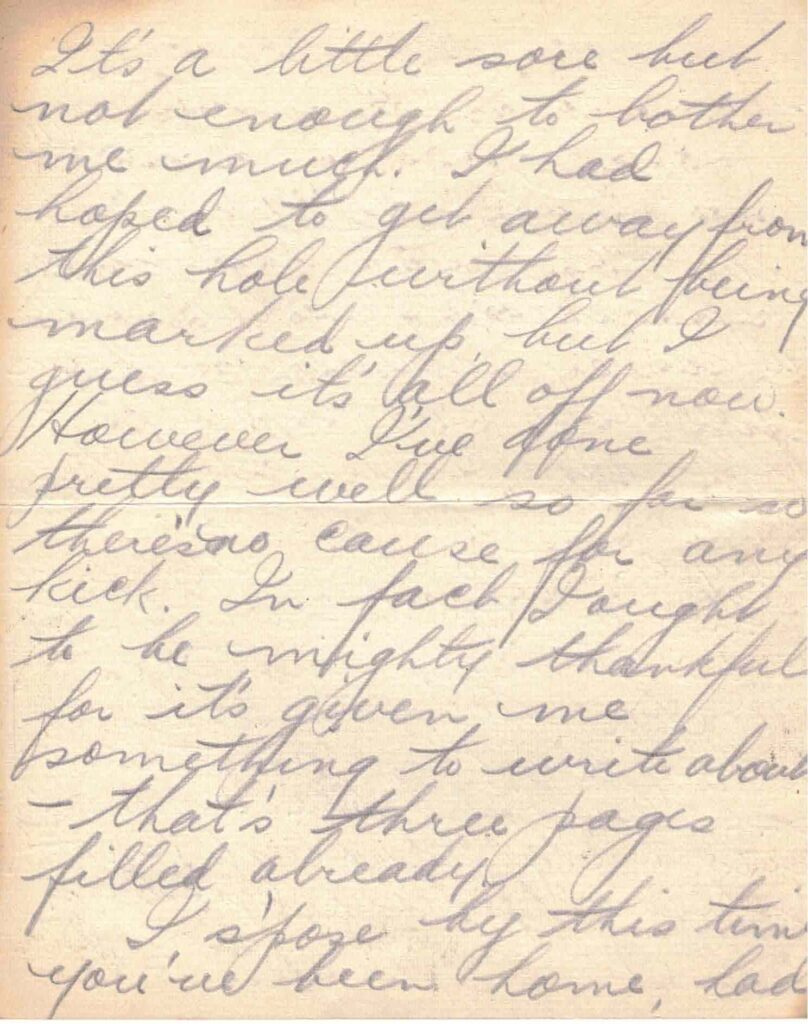 It's a little sore but
not enough to bother
me much. I had
hoped to get away from
this hole without being
marked up, but I
guess it's all off now.
However I've done
pretty well so far so
there's no cause for any
kick. In fact I ought
to be mighty thankful
for it's given me
something to write about
- that's three pages
filled already.
I s'pose by this time
you've been home, had